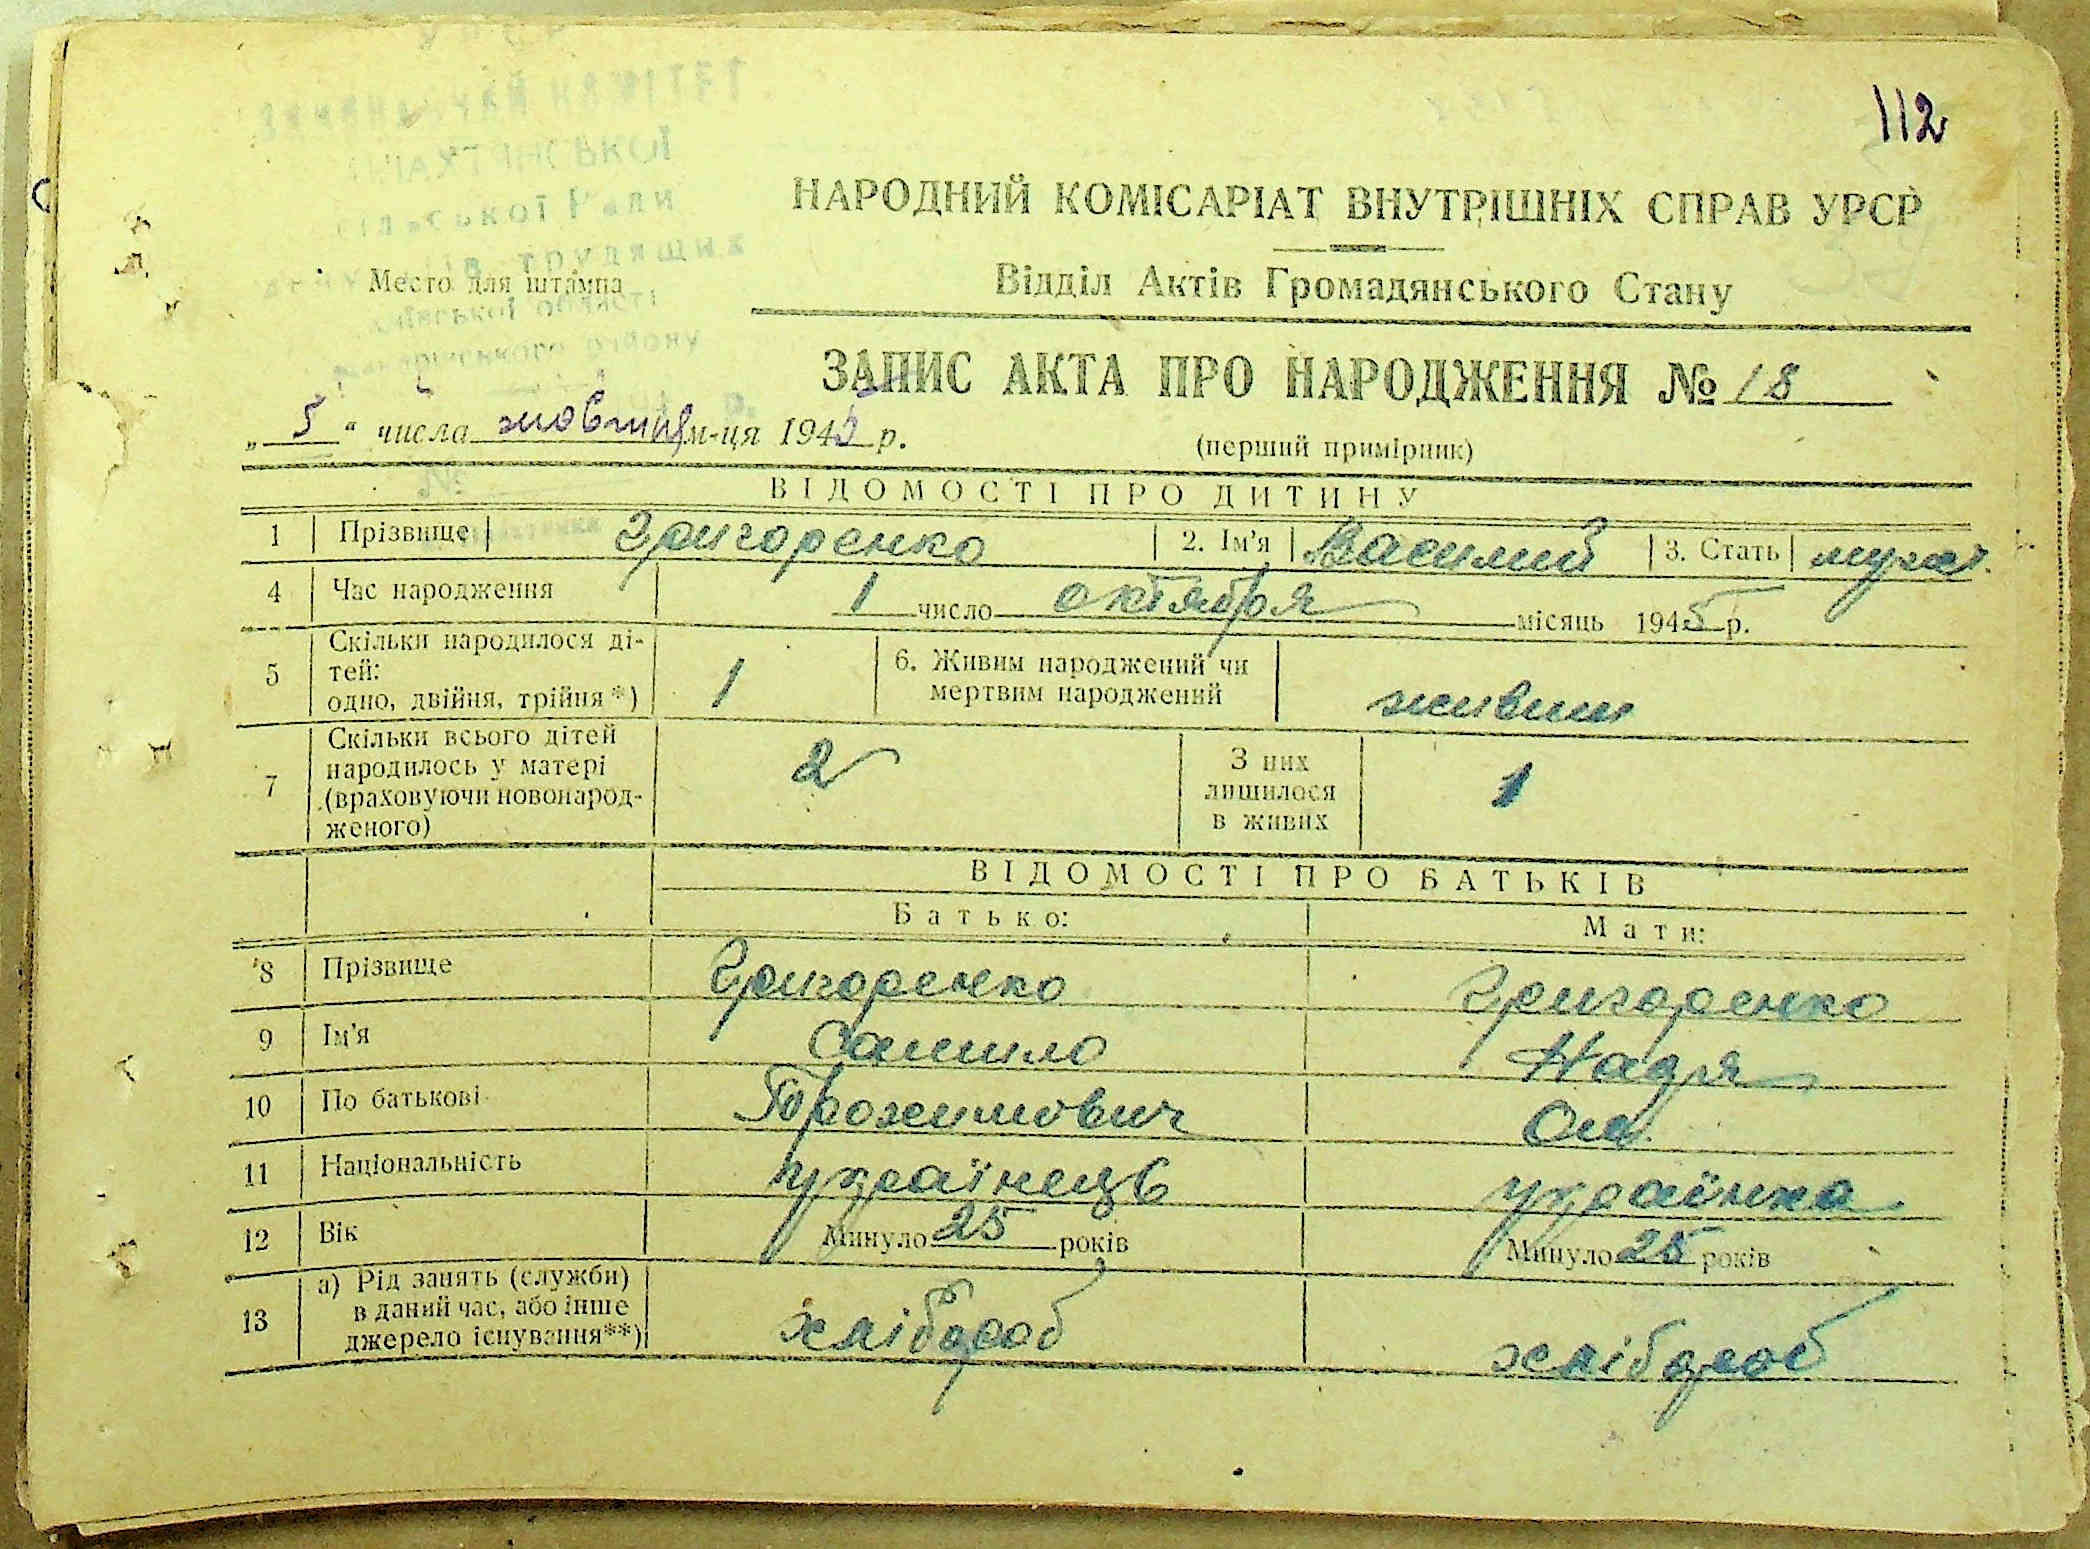 112
УРСР
ВИКОНАВЧИЙ КОМІТЕТ
сільської Ради
депутатів трудящих
Київської області
Макарівського району
НАРОДНИЙ КОМІСАРІАТ ВНУТРІШНІХ СПРАВ УРСР
Место для штампа
Відділ Актів Громадянського Стану
ЗАПИС АКТА ПРО НАРОДЖЕННЯ № 18
„ 5 “ числа жовтня м-ця 1945 р.
(перший примірник)
ВІДОМОСТІ ПРО ДИТИНУ
1 Прізвище Григоренко 2. Ім'я Василий 3. Стать муж.
4 Час народження 1 число октября місяць 1945 р.
5 Скільки народилося ді-
тей:
одно, двійня, трійня *) 1 6. Живим народжений чи
мертвим народжений живим
7 Скільки всього дітей
народилось у матері
(враховуючи новонарод-
женого) 2 З них
лишилося
в живих 1
ВІДОМОСТІ ПРО БАТЬКІВ
Батько: Мати:
8 Прізвище Григоренко Григоренко
9 Ім'я Самило Надя
10 По батькові Трохимович Ол.
11 Національність українець українка
12 Вік Минуло 25 років Минуло 25 років
13 а) Рід занять (служби)
в даний час, або інше
джерело існування**) хлібороб хлібороб